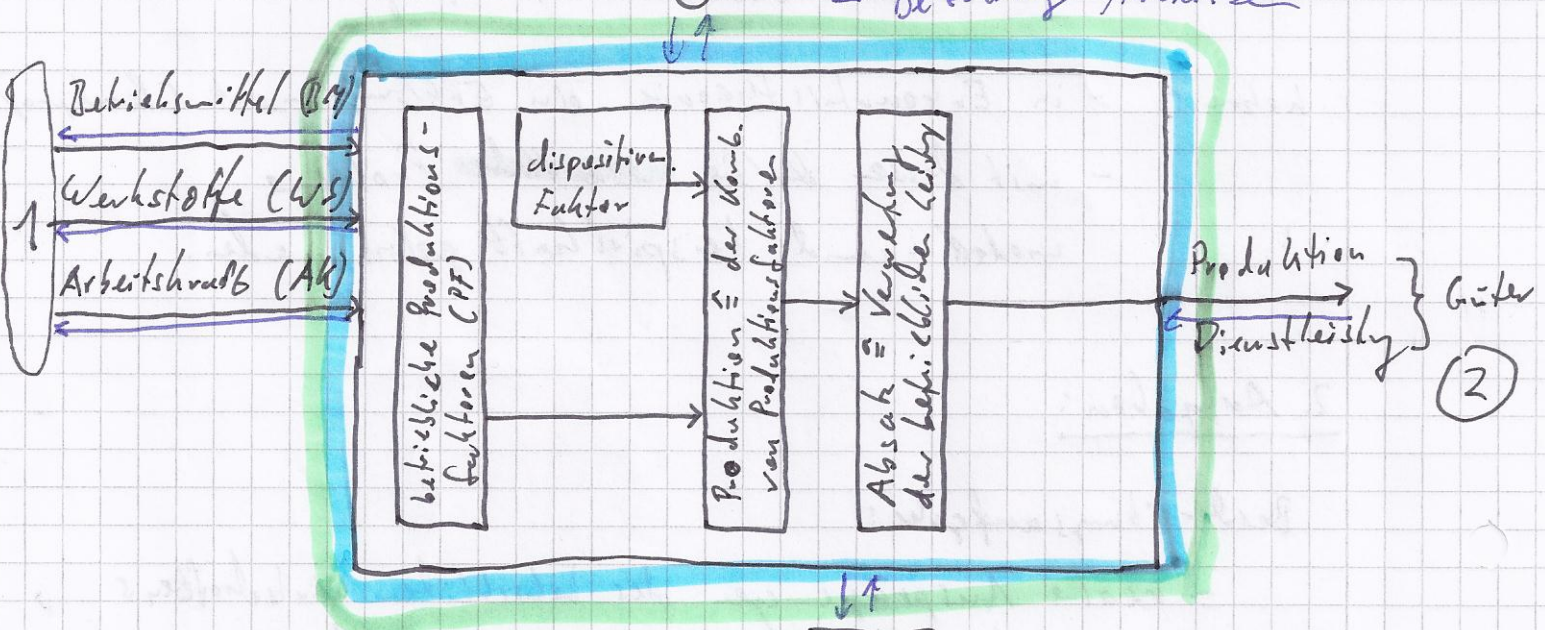 Betriebsmittel (BM)
Werkstoffe (WS)
Arbeitskraft (AK)
1
betriebliche Produktions-
faktoren (PF)
dispositiver
Faktor
Produktion ≙ der Komb.
von Produktionsfaktoren
Absatz ≙ Verwertung
der betrieblichen Leistg
Produktion
Dienstleistg
Güter
2